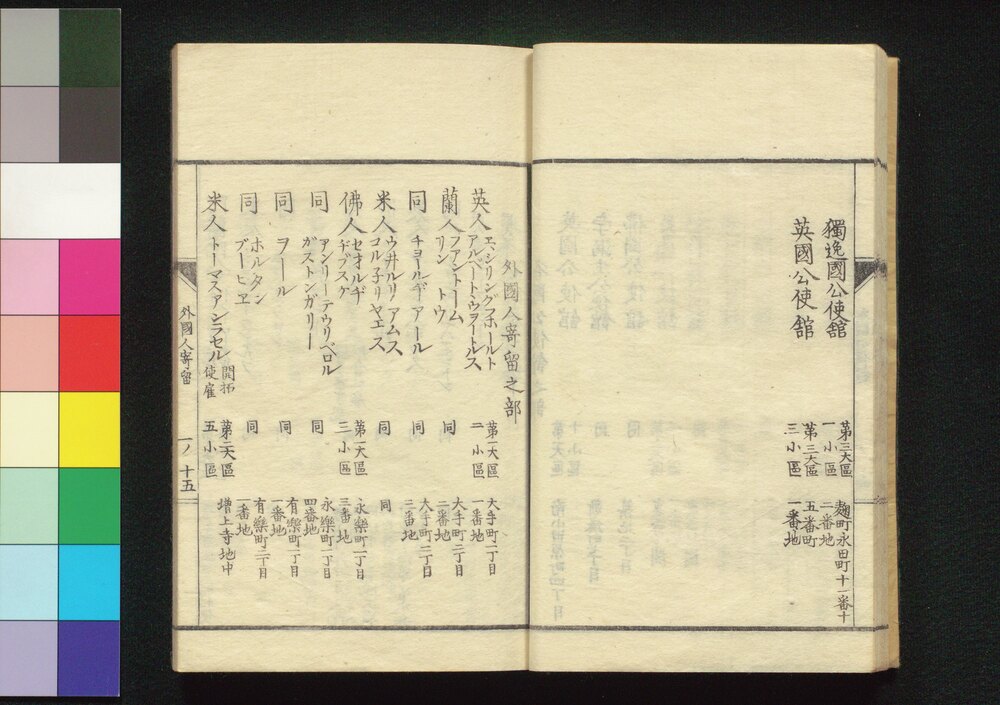 獨逸國公使舘 第三大區一小區 麹町永田町十一番十二番地
英國公使舘 第三大區三小區 五番町一番地
外國人寄留之部
英人 エジリングフホールト アルベートウヲートルス 第一大區二小區 大手町一丁目一番地
蘭人 ファントーム リントウ 同 大手町二丁目二番地
同 チョールヂアール 同 大手町二丁目二番地
米人 ウ井ルリアムス コル子リヤエス 同 同
佛人 セオルヂ ヂブスケ 第一大區三小區 永樂町一丁目三番地
同 アンリーテウリベロル ガストンガリー 同 永樂町一丁目四番地
同 ヲール 同 有樂町一丁目一番地
同 ホルタン ブーヒヱ 同 有樂町二丁目一番地
米人 トーマスアンニラセル 開拓使雇 第二大區五小區 増上寺地中
外國人寄留 一ノ十五